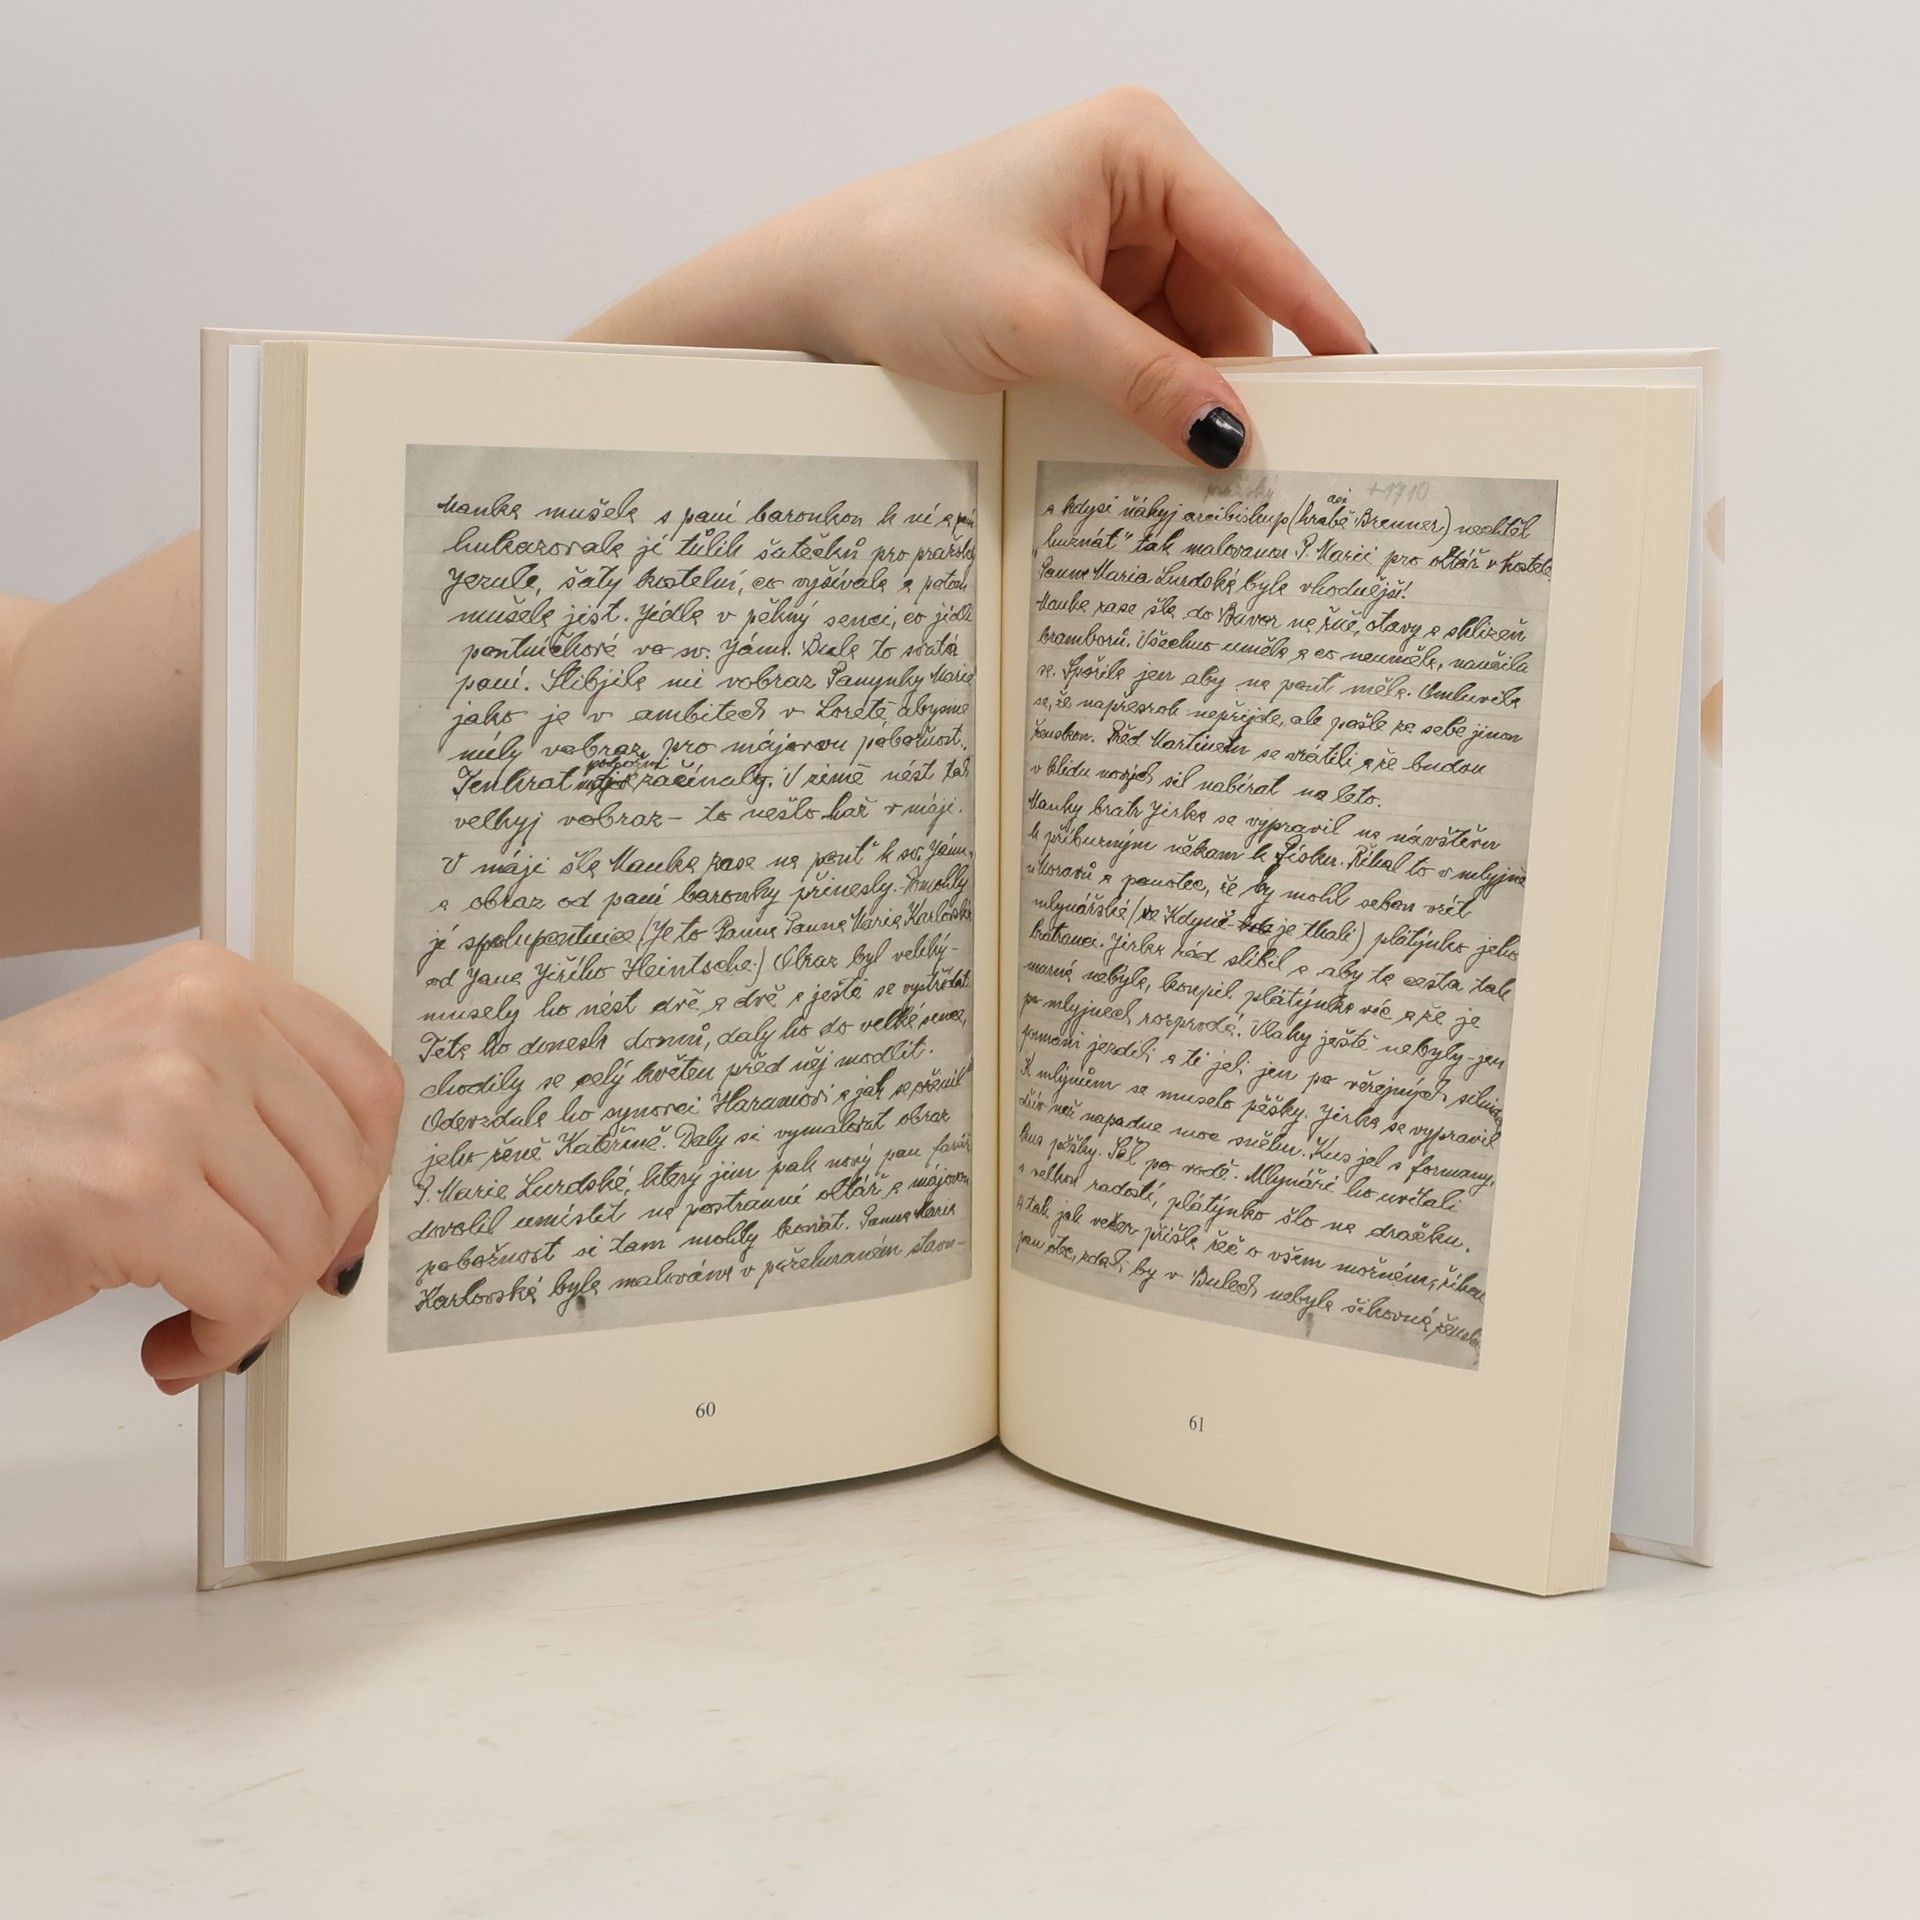 Manka mušela s paní baronkou k ní a paní
hukazovala jí tůlik šatečků pro pražský
Jezule, šáty kostelní, co vyšívala a potom
mušela jist. Jídla v pěkný senci, co jídli
poutníčkové vo sv. Jánu. Bula to svatá
paní. Slibjila mi vobraz Panynky Marie
jako je v ambitech v Loretě, abysme
měly vobraz pro májovou pobožnost.
Tenkrat pobožni začínaly. V zimě nést tak
velkyj vobraz – to nešlo kaž v máji.
V máji šla Manka zase na pouť k sv. Jánu
a obraz od paní baronky přinesly. Pomohly
jí spolupoutnice (Je to Panna Marie Karlovská
od Jana Jiřího Heintsche.) Obraz byl velký –
musely ho nést dvě a dvě a ještě se vystřídat
Teta ho donesla domů, daly ho do velké sence,
chodily se celý květen před něj modlit.
Odevzdala ho synovci Haramovi a jak se oženil
jeho ženě Kateřině. Daly si vymalovat obraz
P. Marie Lurdské, který jim pak nový pan farář
dovolil umístit na postranní oltář a májovou
pobožnost si tam mohly konat. Panna Maria
Karlovská byla malována v požehnaném stavu –
60
+1710
a kdysi ňákyj arcibiskup (hrabě Breuner) nechtěl
"huznát" tak malovanou P. Marii pro oltář v kostele
Panna Maria Lurdská byla vhodnější!
Manka zase šla do Bavor na žně, otavy a sklizeň
bramborů. Všechno uměla a co neuměla, naučila
se. Spořila jen aby na pouť měla. Omluvila
se, že napřesrok nepřijde, ale pošle za sebe jinou
ženskou. Před Martinem se vrátili a že budou
v klidu novejch sil nabírat na léto.
Manky bratr Jirka se vypravil na návštěvu
k příbuzným někam k Písku. Říkal to v mlyjně
u Moravů a panotec, že by mohl sebou vzít
mlynářské (ve Kdyni je tkali) plátýnko jeho
bratranci. Jirka rád slíbil a aby ta cesta tak
marná nebyla, koupil plátýnka víc a že je
po mlyjnech rozprodá. Vlaky ještě nebyly – jen
formani jezdili a ti jeli jen po věrejných silnicích
K mlýnům se muselo pěšky. Jirka se vypravil
dřív než napadne moc sněhu. Kus jel s formany,
kus pěšky. Šel po vodě. Mlynáři ho uvítali
s velkou radostí, plátýnko šlo na dračku.
A tak jak večer přišla řeč o všem možném, říkal
pan otec, zdali by v Bulech nebyla šikovná ženská
61